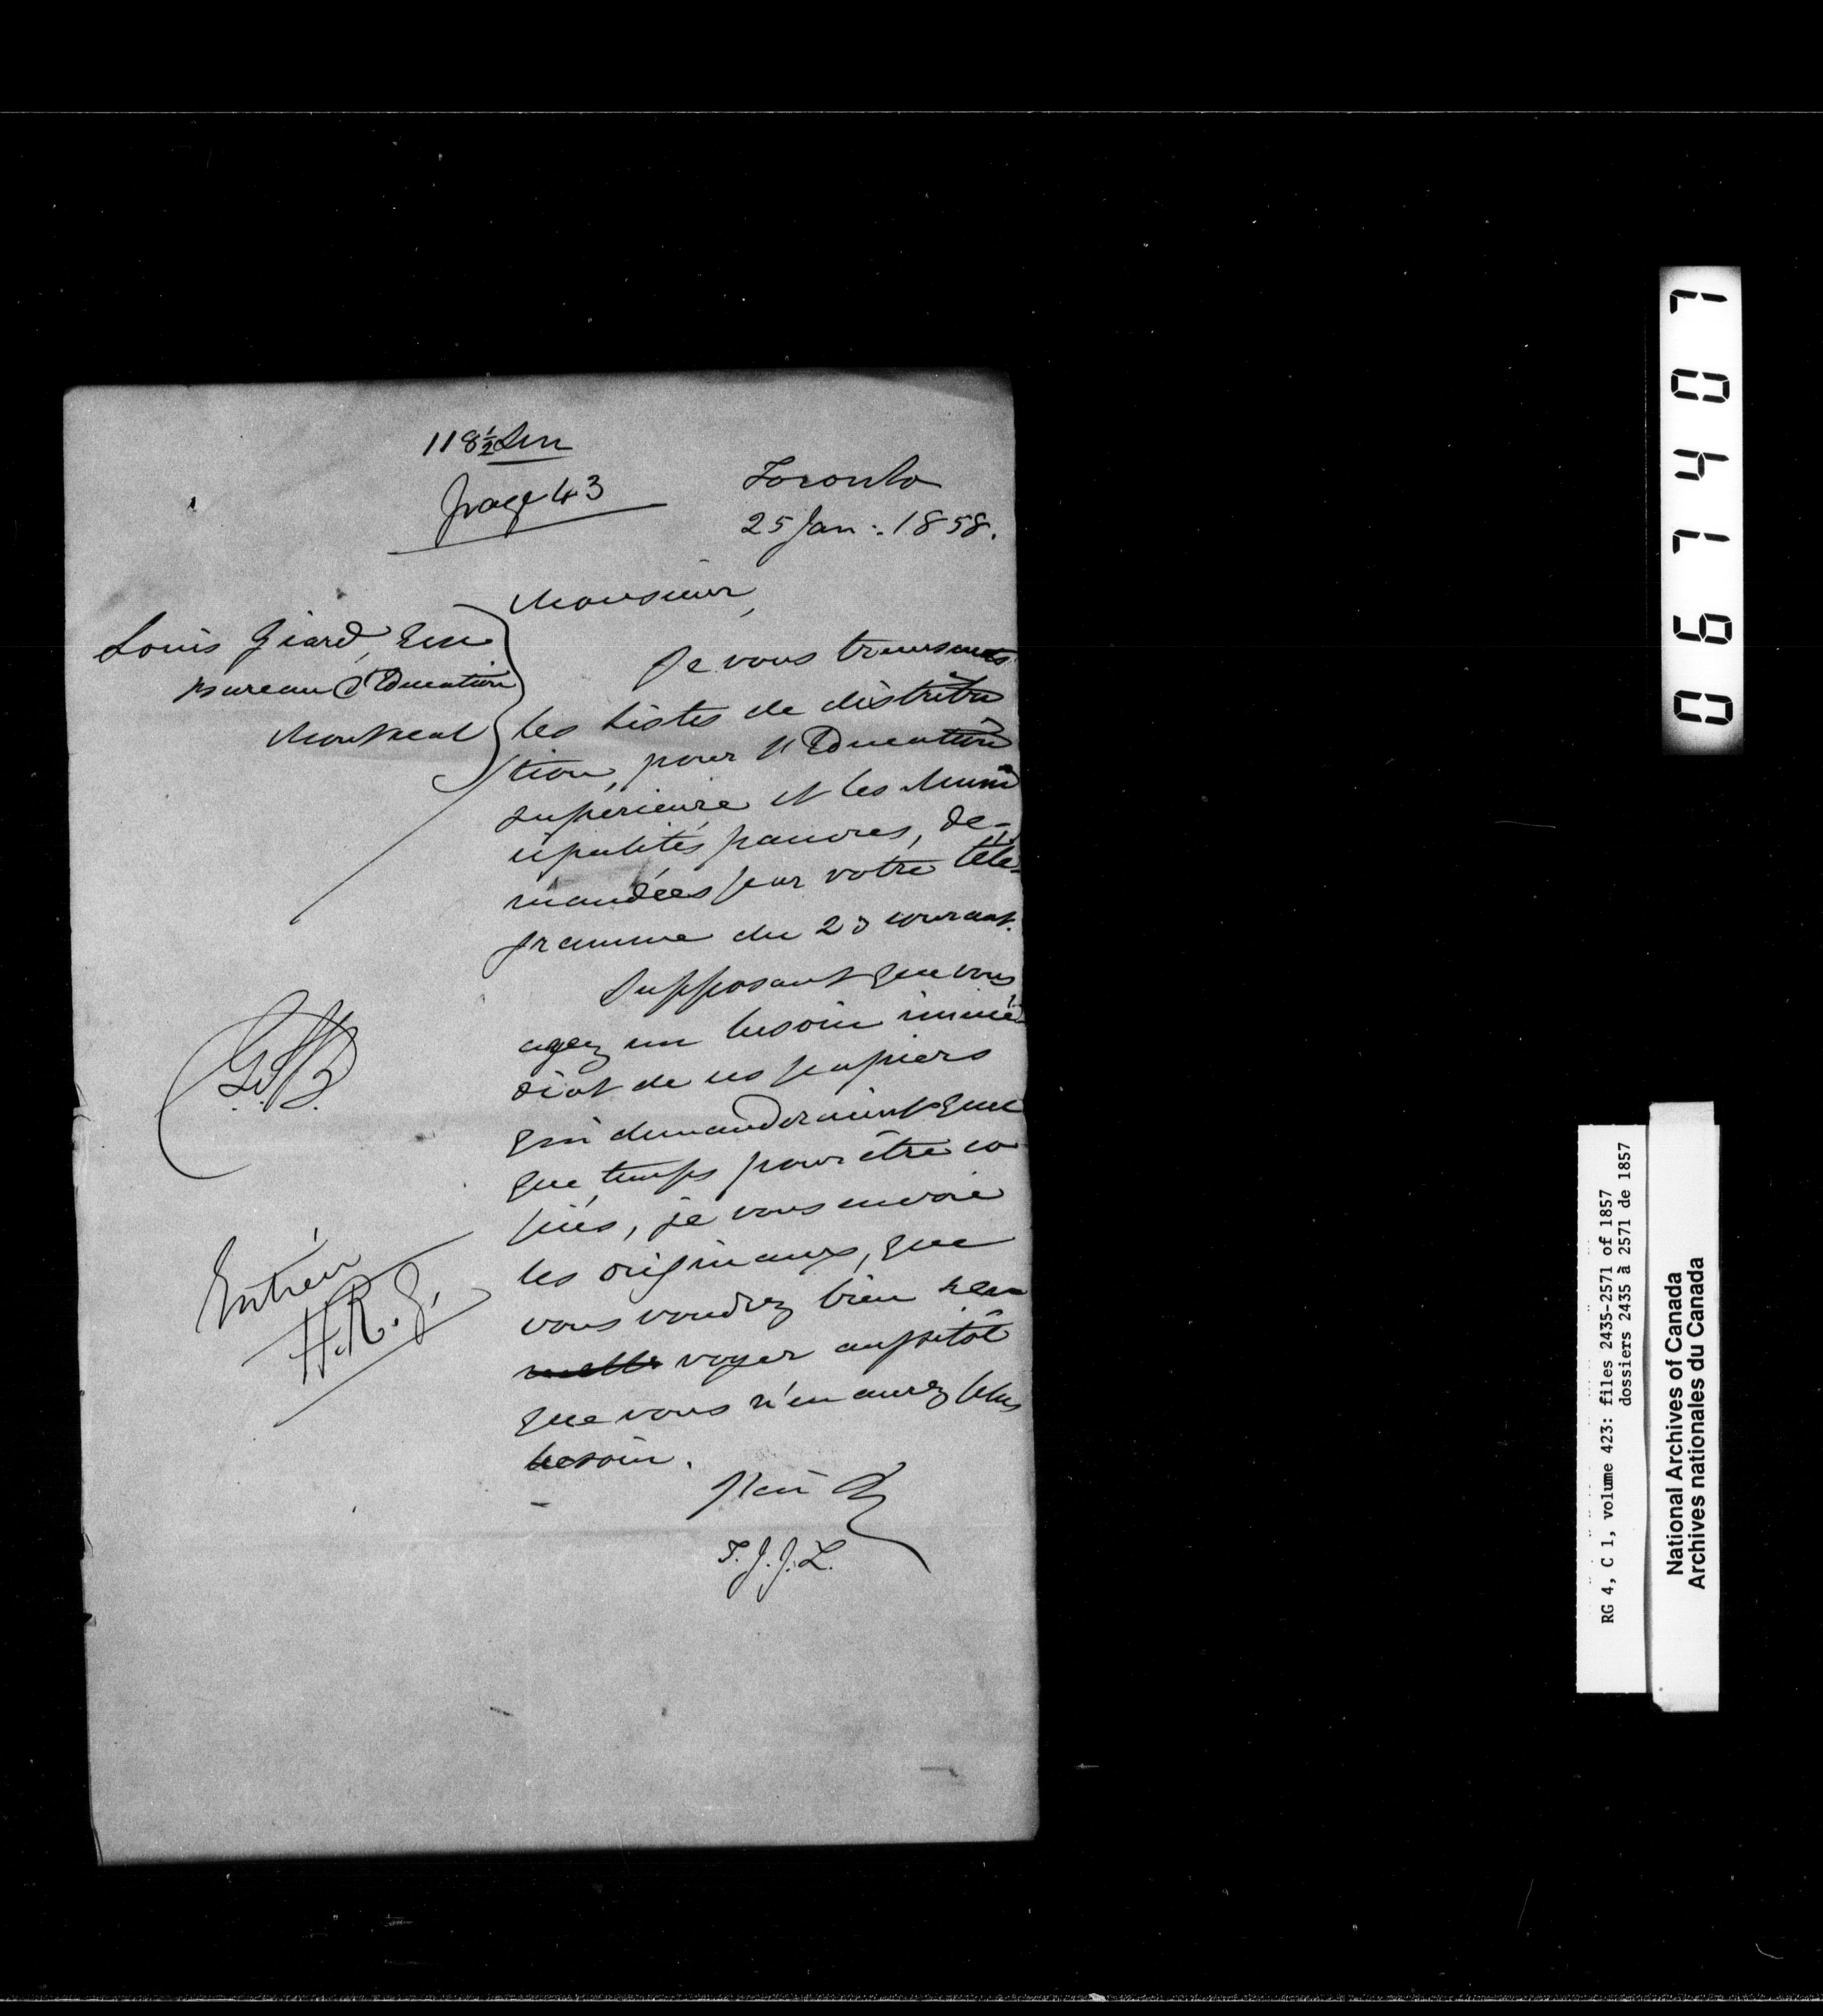 118½
page 43
Toronto
25 Jan: 1858.
Monsieur,
Louis Giard, Ecr
Bureau d'Education
Montreal
Je vous transmets
les listes de distribu
tion, pour l'Education
supérieure et les Muni
cipalités pauvres, de-
mandées par votre télé-
gramme du 23 courant.
Supposant que vous
ayez un besoin immé-
diat de ces papiers
qui demanderaient quel
que temps pour être co
piés, je vous envoie
les originaux, que
vous voudrez bien ren
voyer aussitôt
que vous n'en aurez plus
besoin.
T. J. J. L.
G. B.
Entrée
H. R. G.
067407
RG 4, C 1, volume 423: files 2435-2571 of 1857
dossiers 2435 à 2571 de 1857
National Archives of Canada
Archives nationales du Canada